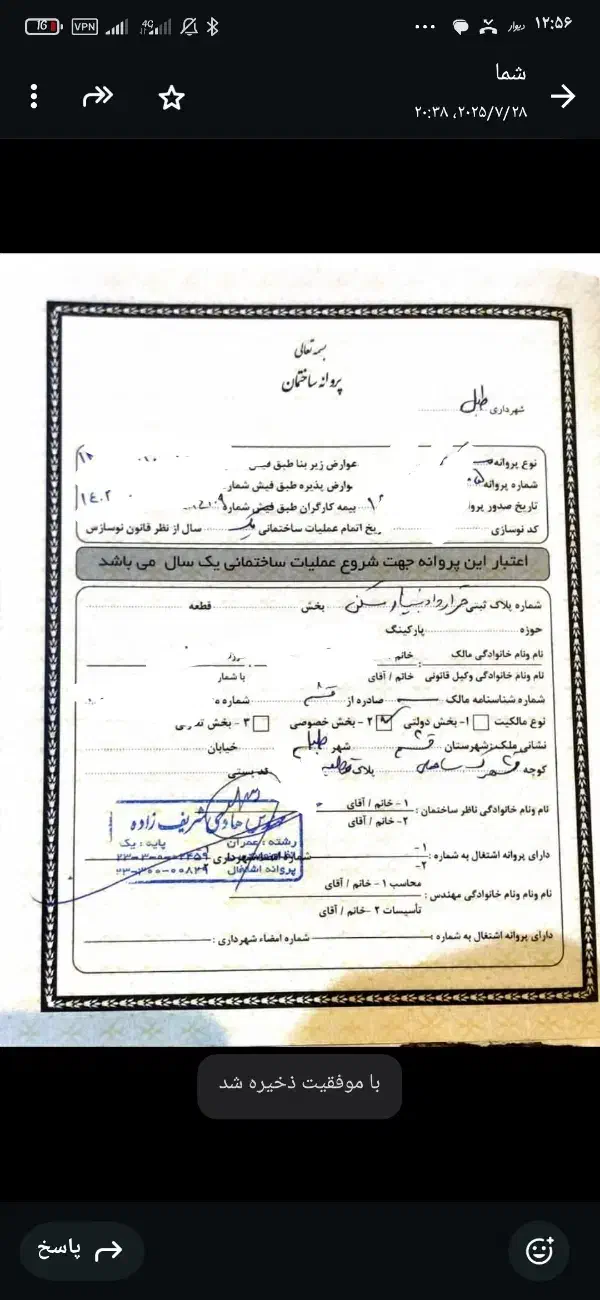 ۱۲:۵۶ دیوار ... 4G VPN 16
شما
۲۰۲۵/۷/۲۸، ۲۰:۳۸
بسمه تعالی
پروانه ساختمان
شهرداری طبل
نوع پروانه عوارض زیر بنا طبق فیش
شماره پروانه عوارض پذیره طبق فیش شماره
تاریخ صدور پروانه بیمه کارگران طبق فیش شماره ۱۴۰۲
کد نوسازی تاریخ اتمام عملیات ساختمانی یک سال از نظر قانون نوسازی
اعتبار این پروانه جهت شروع عملیات ساختمانی یک سال می باشد
شماره پلاک ثبتی قرارداد بنیاد مسکن بخش قطعه
حوزه پارکینگ
نام ونام خانوادگی مالک خانم
نام ونام خانوادگی وکیل قانونی خانم / آقای با شمار
شماره شناسنامه مالک صادره از قشم شماره
نوع مالکیت ۱- بخش دولتی ۲- بخش خصوصی ۳- بخش
نشانی ملک: شهرستان قشم شهر طبل خیابان
کوچه پلاک کد پستی
نام ونام خانوادگی ناظر ساختمان : ۱- خانم / آقای
۲- خانم / آقای
مهندس هادی شریف زاده
رشته : عمران پایه : یک
دارای پروانه اشتغال به شماره : ۱-
۲-
شماره امضاء شهرداری
پروانه اشتغال
نام ونام خانوادگی مهندس : محاسب ۱- خانم / آقای
تأسیسات ۲- خانم / آقای
دارای پروانه اشتغال به شماره : شماره امضاء شهرداری :
با موفقیت ذخیره شد
پاسخ